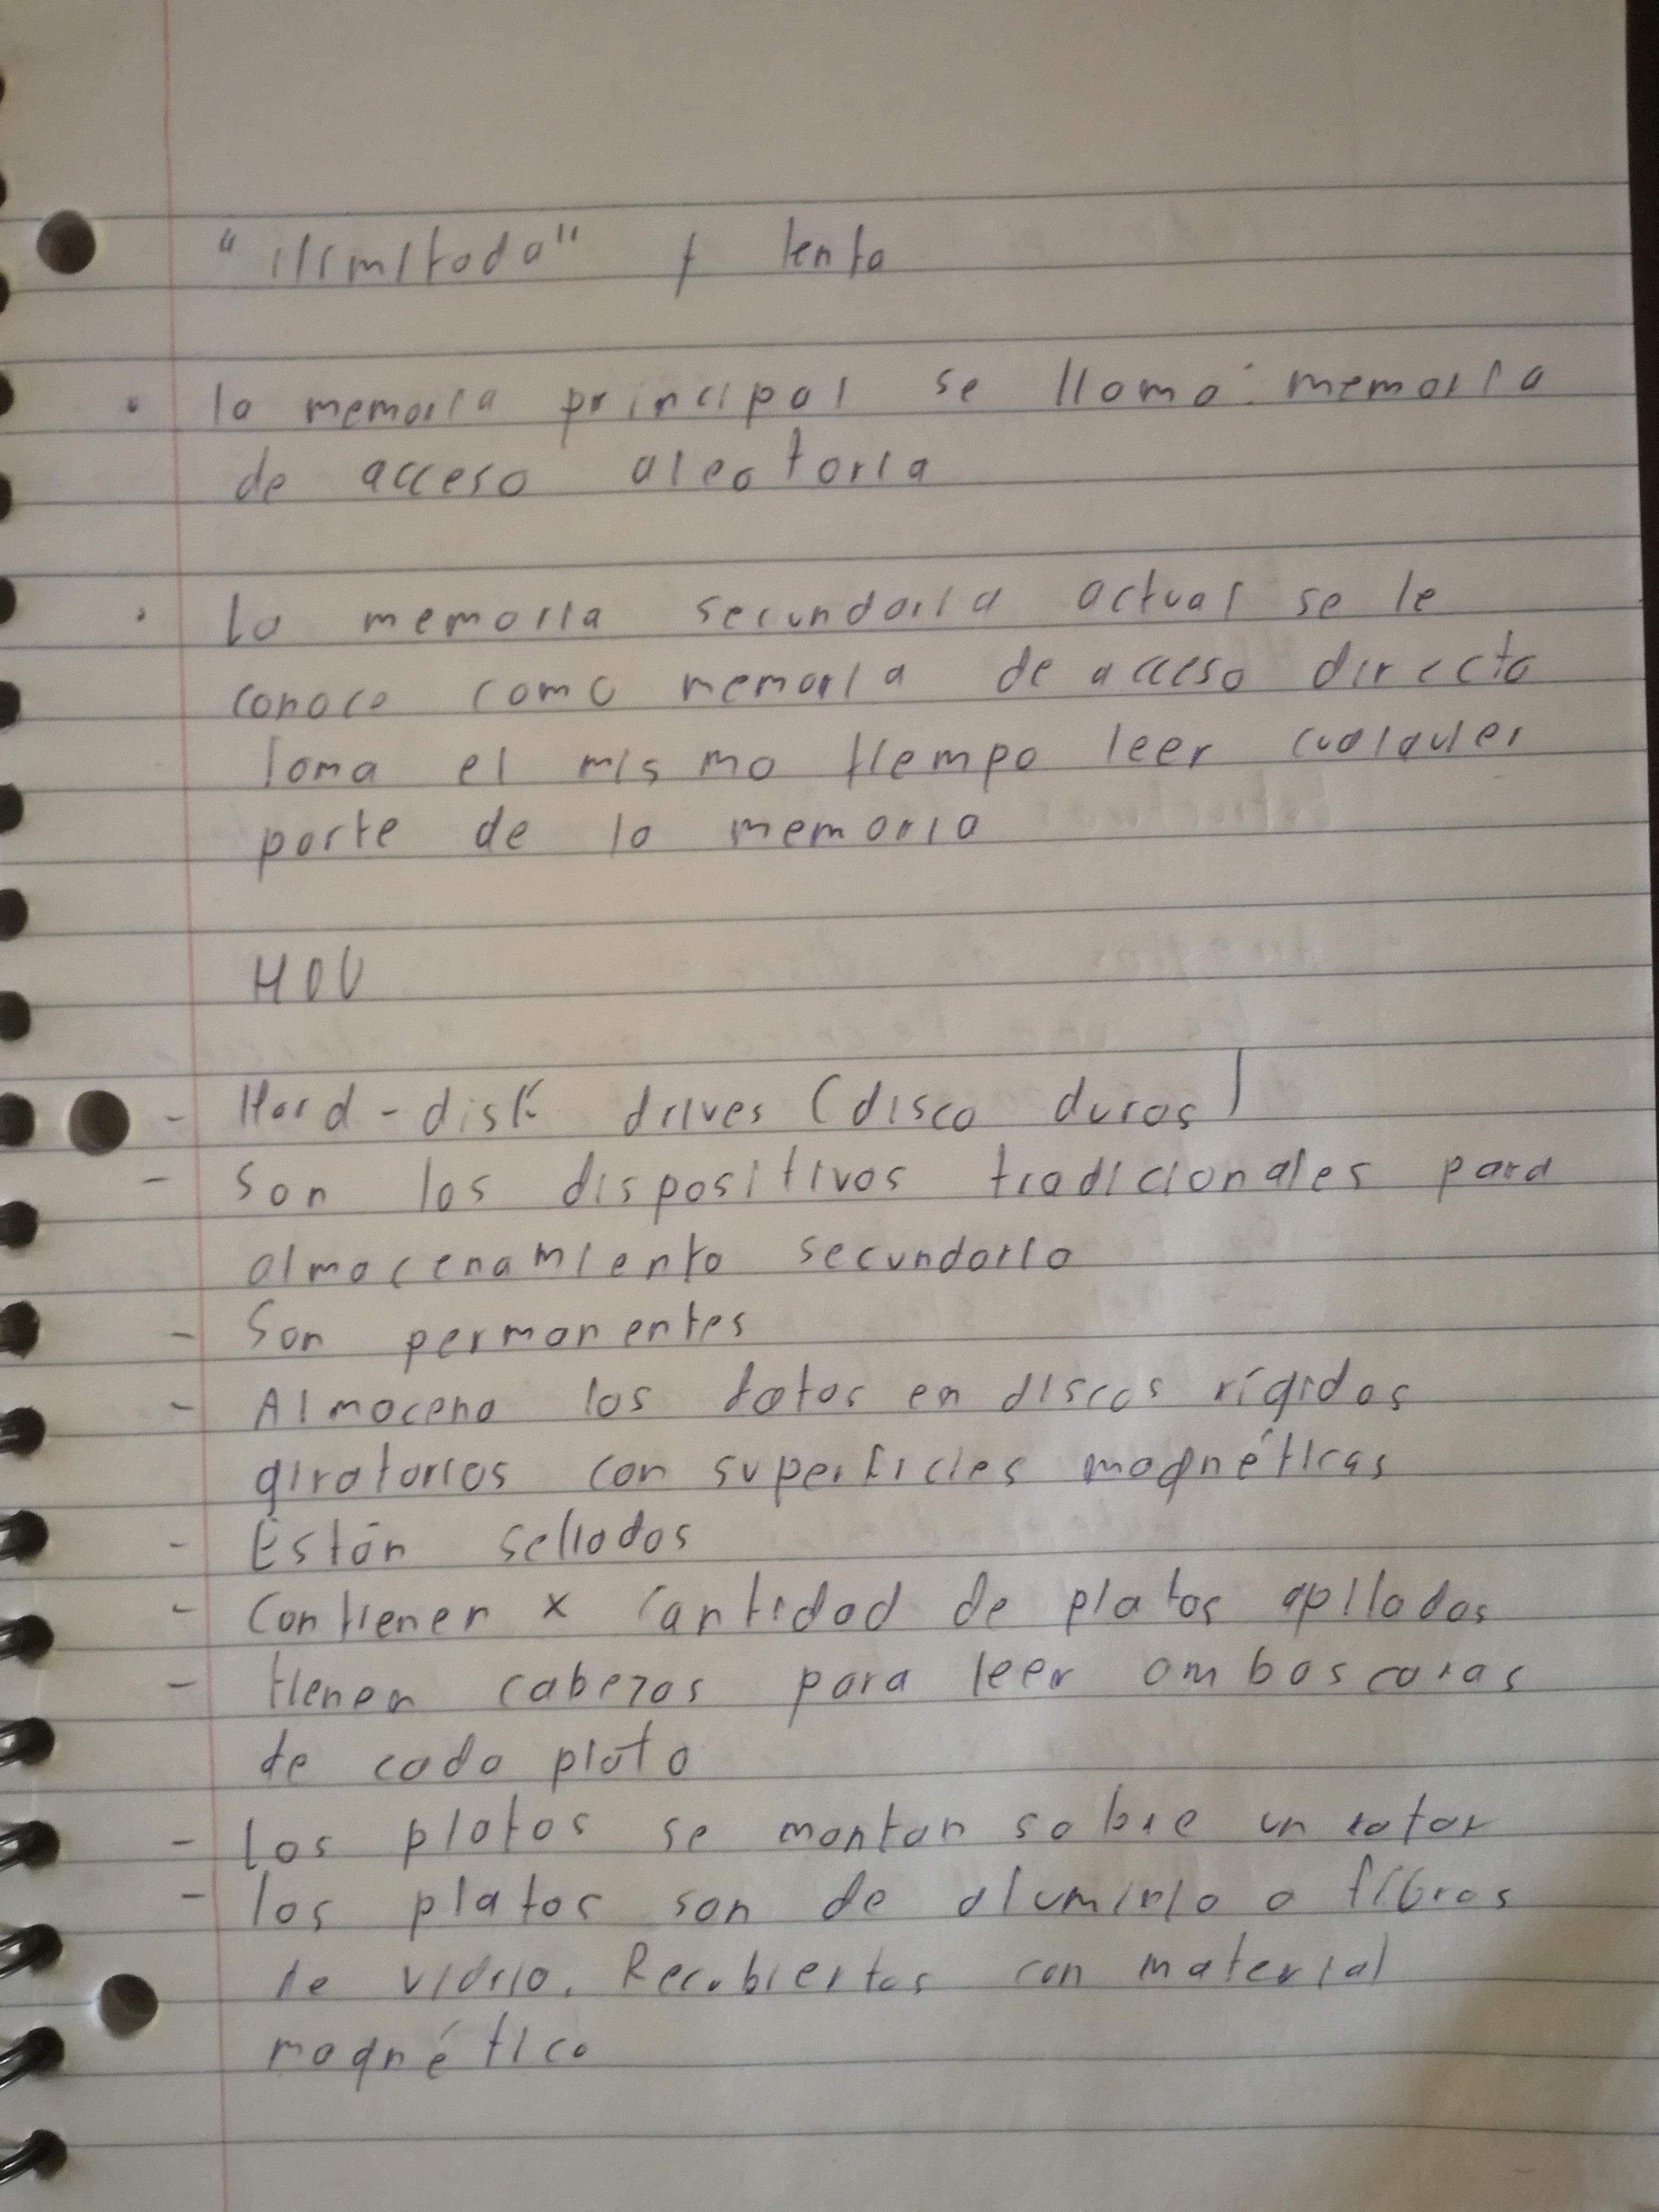 "ilimitada" y lenta
• la memoria principal se llama: memoria
de acceso aleatoria
• La memoria secundaria actual se le
conoce como memoria de acceso directo
Toma el mismo tiempo leer cualquier
parte de la memoria
HDD
- Hard-disk drives (disco duros)
- Son los dispositivos tradicionales para
almacenamiento secundario
- Son permanentes
- Almacena los datos en discos rígidos
giratorios con superficies magnéticas
- Están sellados
- Contienen x cantidad de platos apilados
- tienen cabezas para leer ambas caras
de cada plato
- Los platos se montan sobre un rotor
- los platos son de aluminio o fibras
de vidrio. Recubiertos con material
magnético